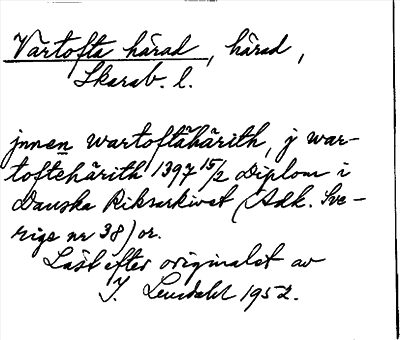 Vartofta härad, härad,
Skarab. l.
jnnen wartoftähärith, j war-
toftehärith 1397 15/2 Diplom i
Danska Riksarkivet (Adk. Sve-
rige nr 38) or.
Läst efter originalet av
I. Lundahl 1952.